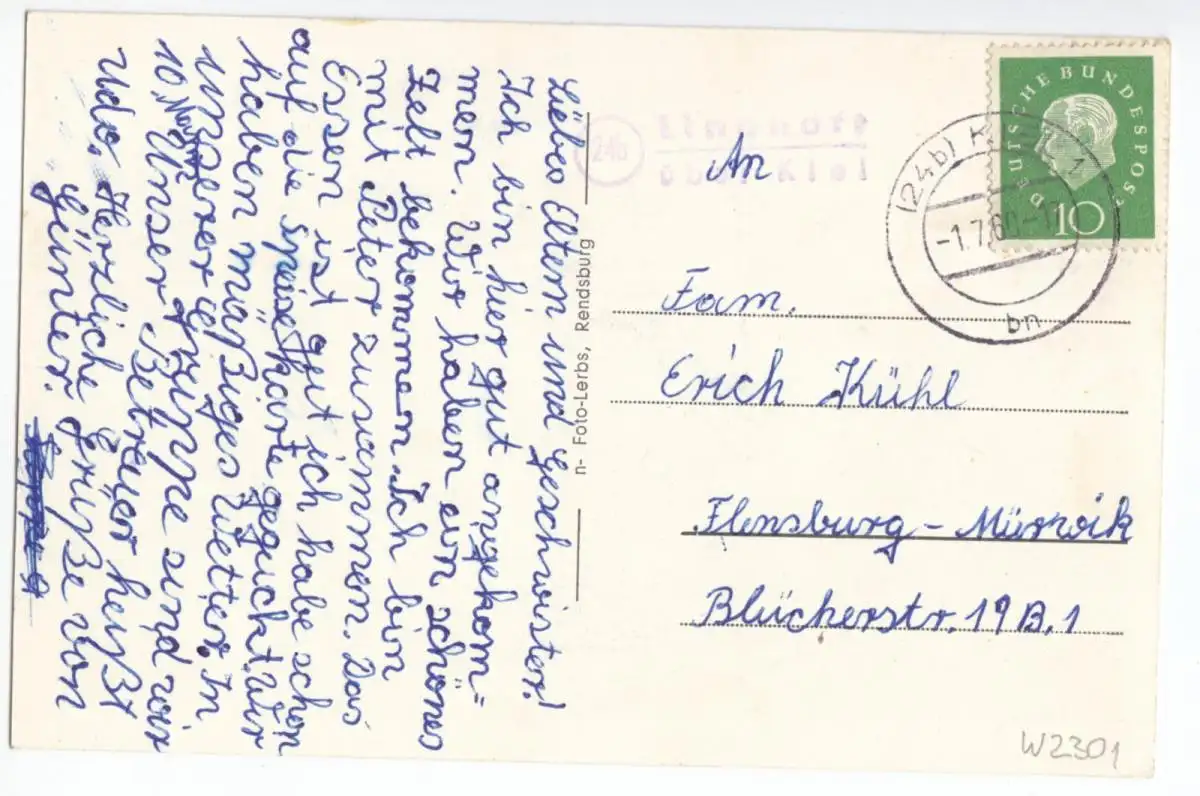 Liebe Eltern und Geschwister!
Ich bin hier gut angekom-
men. Wir haben ein schönes
Zelt bekommen. Ich bin
mit Peter zusammen. Das
Essen ist gut ich habe schon
auf die Speisekarte geguckt. Wir
haben mäßiges Wetter. In
unserer Gruppe sind wir
10 Mann. Unser Betreuer heißt
Udo. Herzliche Grüße von
Günter.
n- Foto-Lerbs, Rendsburg
24b
über Kiel
DEUTSCHE BUNDESPOST
10
(24b) KIEL
-1.7.60-17
bn
An
Fam.
Erich Kühl
Flensburg-Mürwik
Blücherstr. 19 B.1
W2301